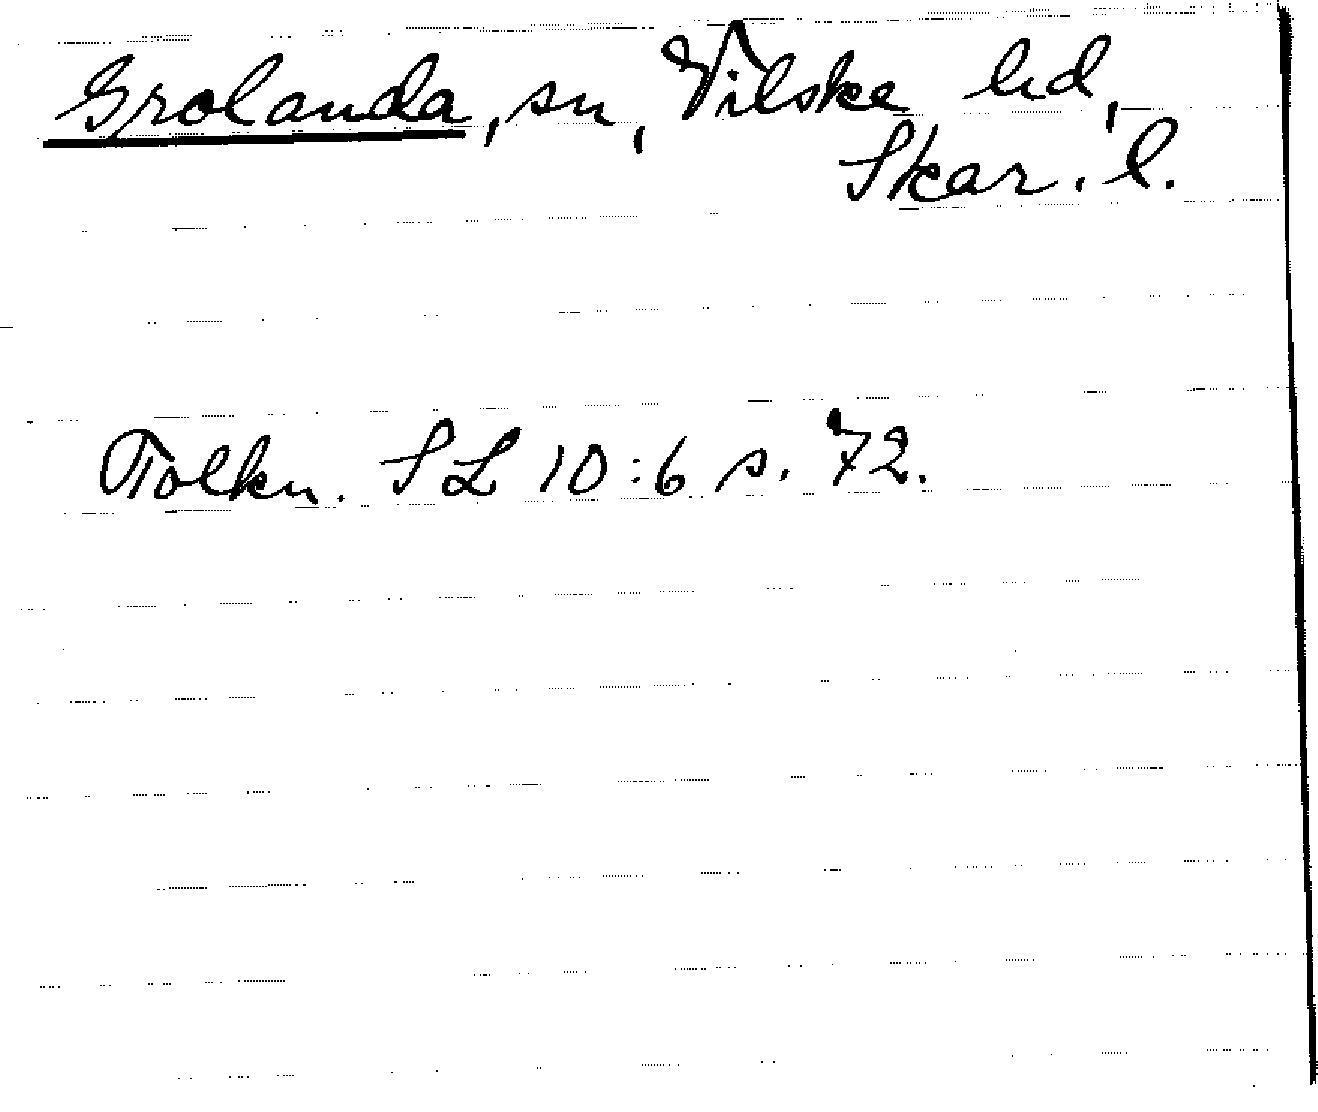 Grolanda, sn, Vilske hd,
Skar. l.
Tolkn. SL 10:6 s. 72.